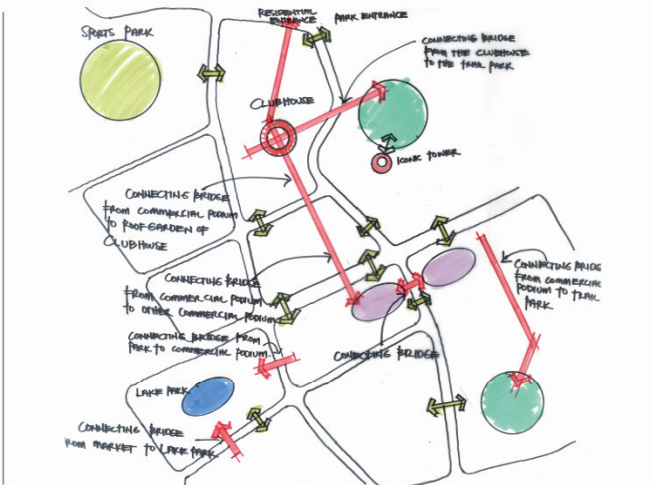 RESIDENTIAL
ENTRANCE
PARK ENTRANCE
SPORTS PARK
CONNECTING BRIDGE
FROM THE CLUBHOUSE
TO THE TRAIL PARK
CLUBHOUSE
ICONIC TOWER
CONNECTING BRIDGE
FROM COMMERCIAL PODIUM
TO ROOF GARDEN OF
CLUBHOUSE
CONNECTING BRIDGE
FROM COMMERCIAL PODIUM
TO OTHER COMMERCIAL PODIUM
CONNECTING BRIDG
FROM COMMERCIAL
PODIUM TO TRAIL
PARK
CONNECTING BRIDGE FROM
PARK TO COMMERCIAL PODIUM.
CONNECTING BRIDGE
LAKE PARK
CONNECTING BRIDGE
ROM MARKET TO LAKE PARK